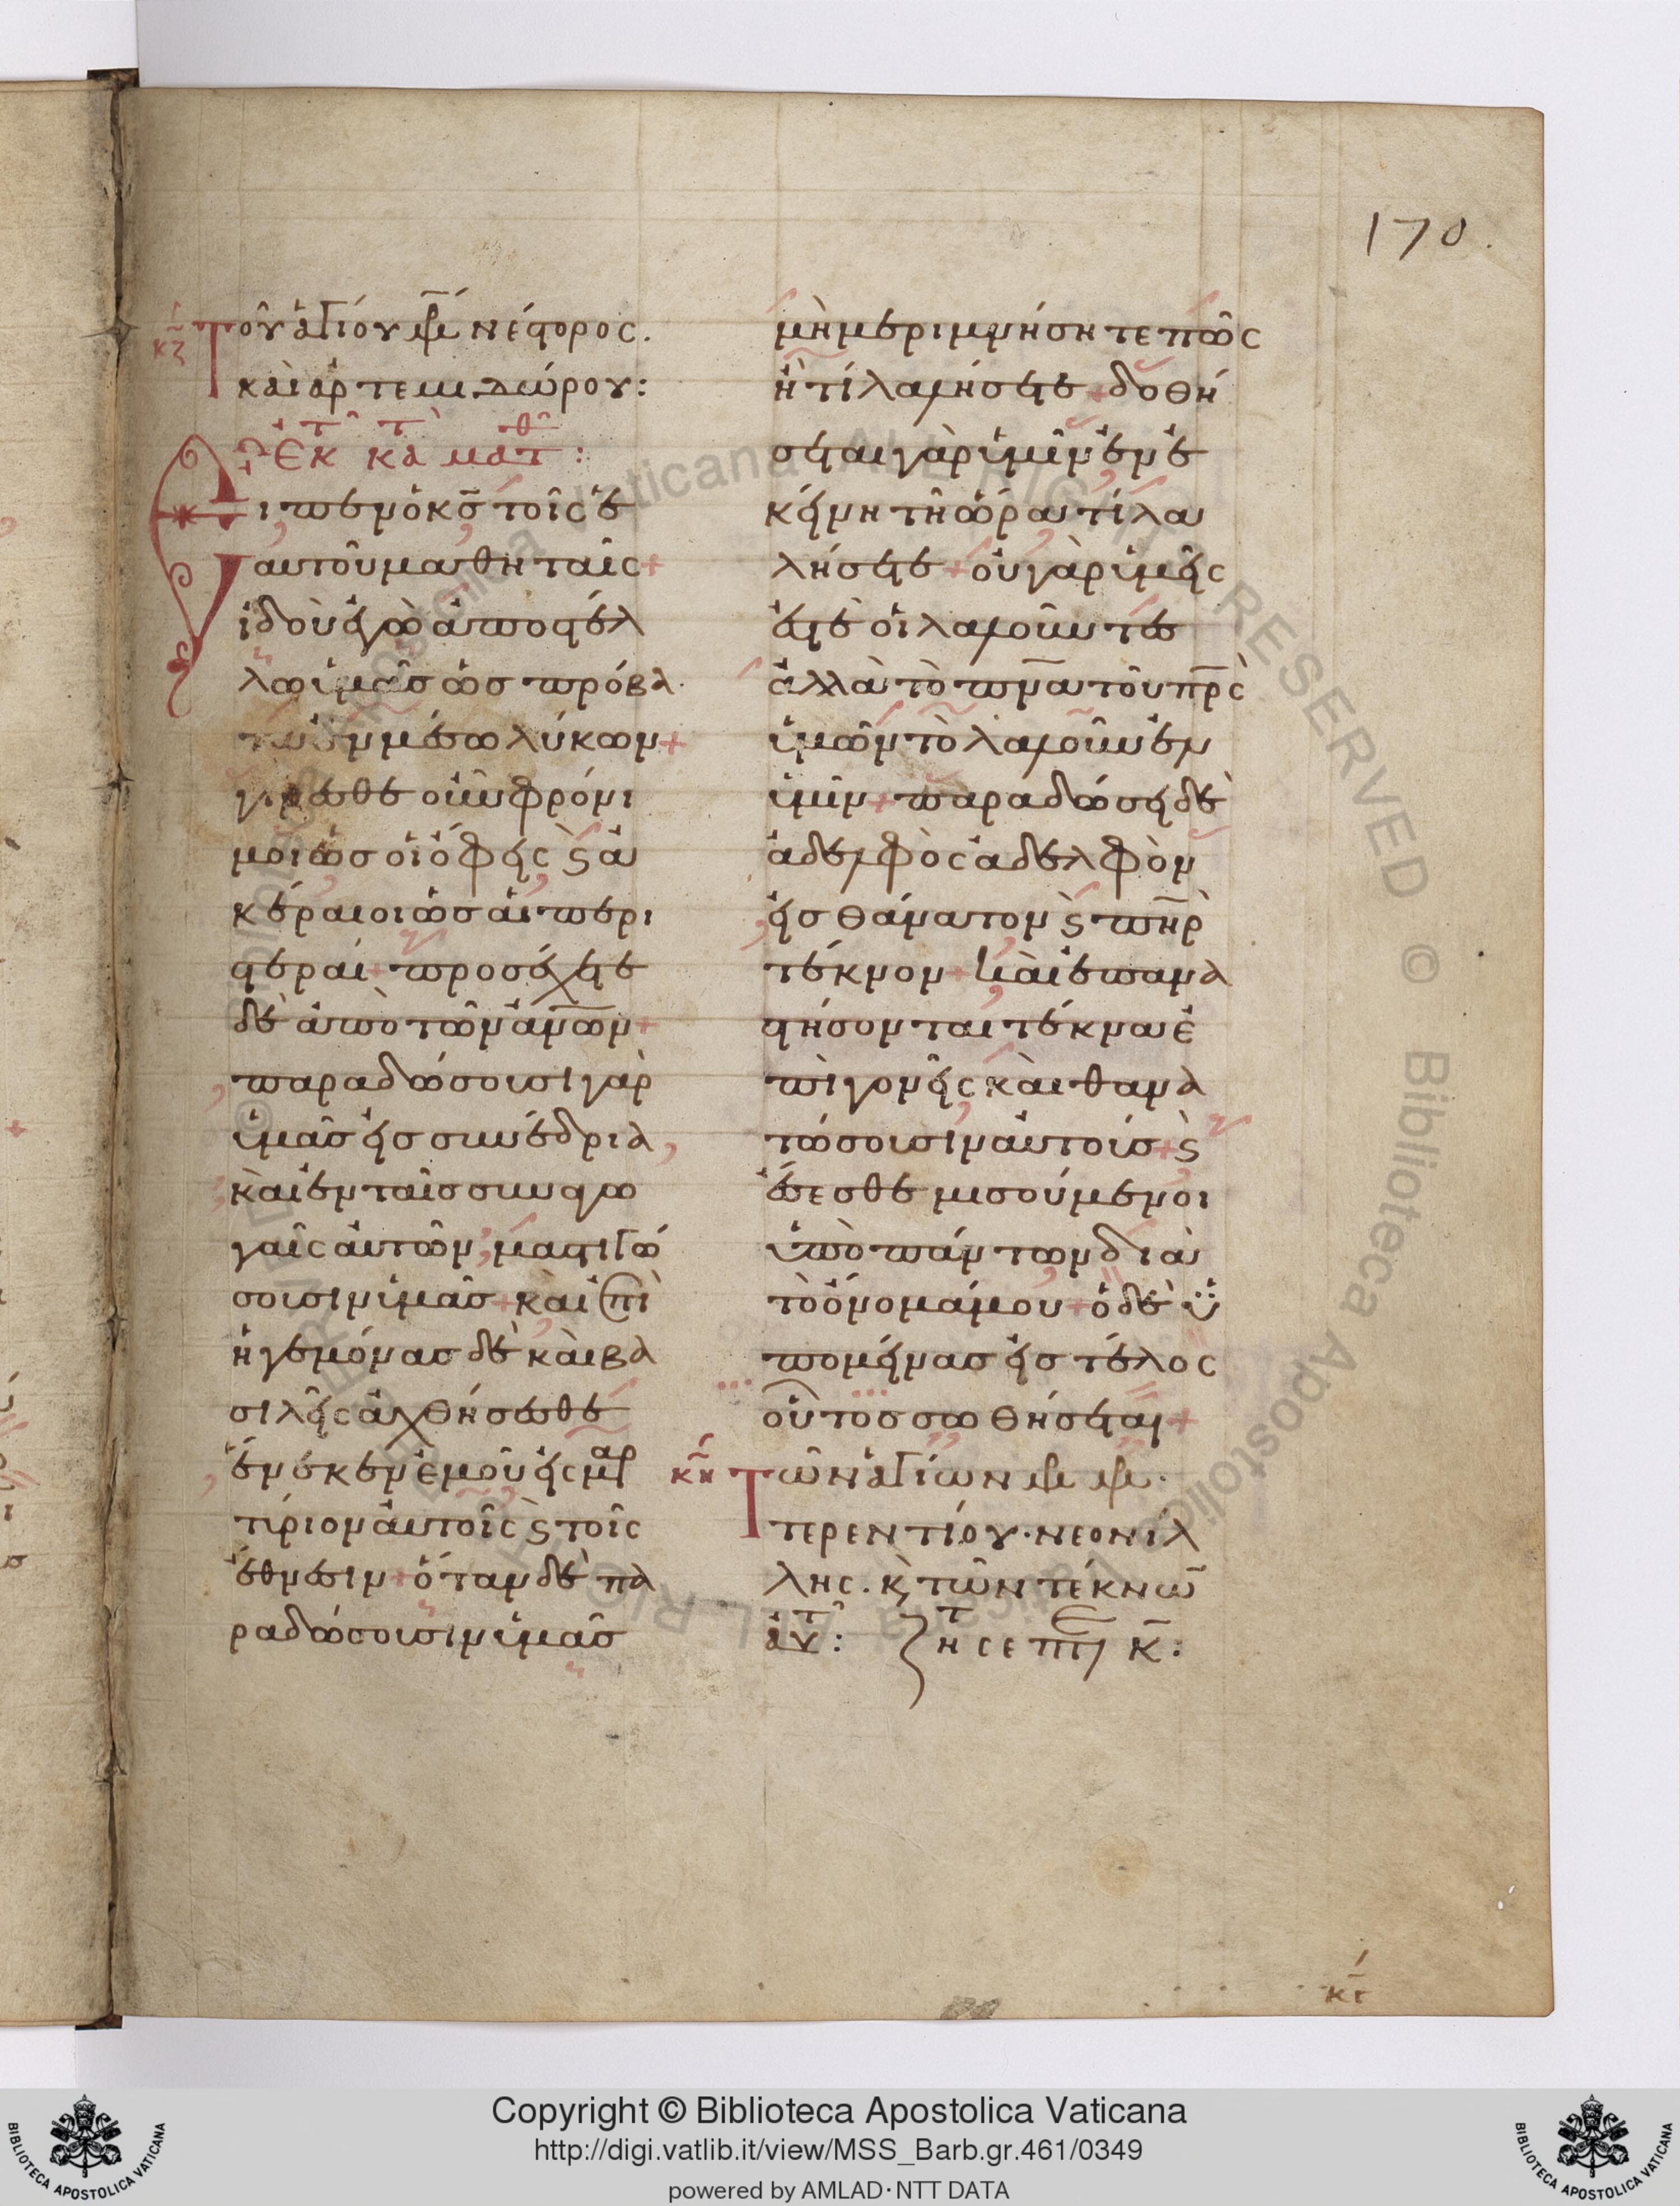 170.
κζ
Τοῦ ἁγίου μρ νέστορος.
καὶ ἀρτεμιδώρου:
ἐκ τοῦ κατὰ ματθ:
Εἶπεν ὁ κς τοῖς ἑ
αυτοῦ μαθηταῖς+
ἰδοὺ ἐγὼ ἀποστέλ
λω ὑμᾶσ ὡσ πρόβα
τα ἐν μέσω λύκων+
γίνεσθε οὖν φρόνι
μοι ὡσ οἱ ὄφεις καὶ ἀ
κέραιοι ὡσ αἱ περι
στεραί+ προσέχετε
δὲ ἀπὸ τῶν ἀνων+
παραδώσουσι γὰρ
ὑμᾶσ εἰσ συνέδρια,
καὶ ἐν ταῖσ συναγω
γαῖς αὐτῶν, μαστιγώ
σουσιν ὑμᾶσ+ καὶ ἐπὶ
ἡγεμόνασ δὲ καὶ βα
σιλεῖς ἀχθήσεσθε
ἕνεκεν ἐμοῦ εἰς μαρ
τύριον αὐτοῖς καὶ τοῖς
ἔθνεσιν+ ὅταν δὲ πα
ραδώσουσιν ὑμᾶσ
μὴ μεριμνήσητε πῶς
ἢ τί λαλήσετε+ δοθή
σεται γὰρ ὑμῖν ἐν ἐ
κείνη τῆ ὥρα τί λα
λήσετε+ οὐ γὰρ ὑμεῖς
ἐστὲ οἱ λαλοῦντεσ
ἀλλὰ τὸ πνα τοῦ πρς
ὑμῶν τὸ λαλοῦν ἐν
ὑμῖν+ παραδώσει δὲ
ἀδελφὸς ἀδελφὸν
εἰσ θάνατον καὶ πηρ
τέκνον+ καὶ ἐπανα
στήσονται τέκνα ἐ
πὶ γονεῖς καὶ θανα
τώσουσιν αὐτούσ+ καὶ
ἔσεσθε μισούμενοι
ὑπὸ πάντων διὰ
τὸ ὄνομά μου+ ὁ δὲ ὑ
πομείνασ εἰσ τέλος
οὗτοσ σωθήσεται+
κη
Τῶν ἁγίων μρ μρ.
τερεντίου. νεονίλ
λης. κ τῶν τέκνω
αὐτ: ζητ σεπτ κ:
κε
Copyright © Biblioteca Apostolica Vaticana
http://digi.vatlib.it/view/MSS_Barb.gr.461/0349
powered by AMLAD·NTT DATA